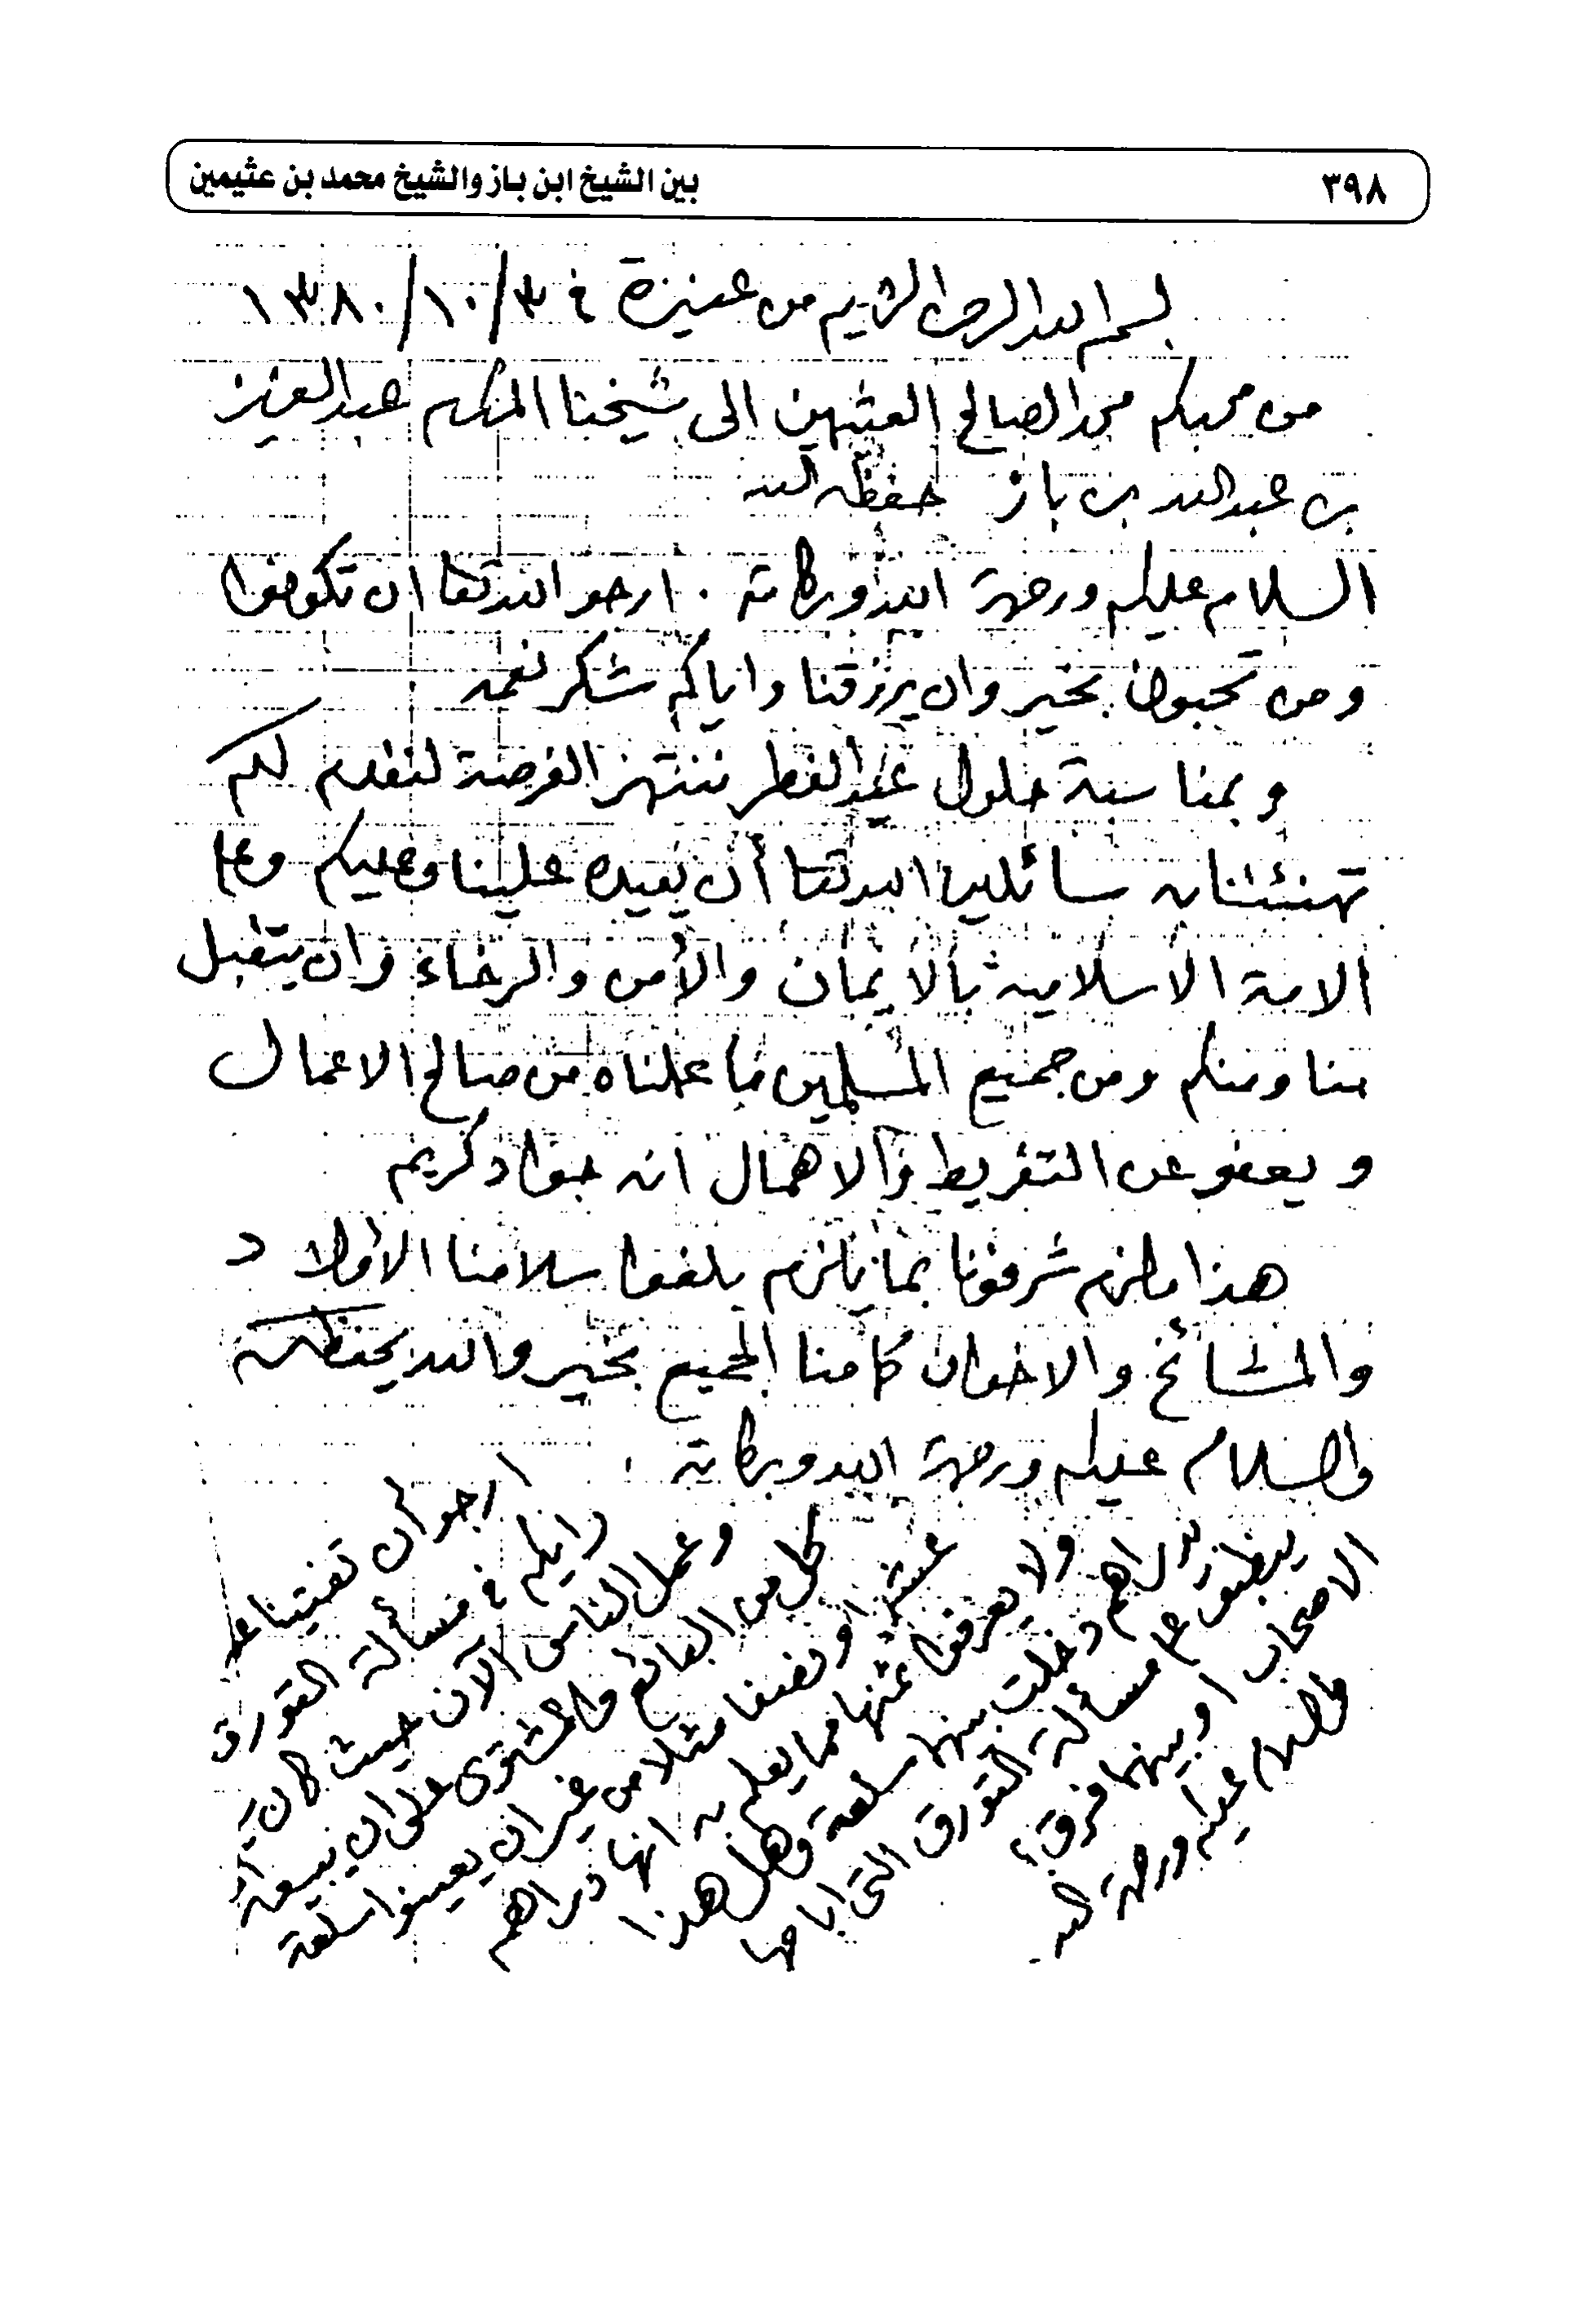 ٣٩٨
بين الشيخ ابن باز والشيخ محمد بن عثيمين
بسم الله الرحمن الرحيم من عنيزة في ٣/١٠/١٣٨٠
من محبكم محمد الصالح العثيمين الى شيخنا المكرم عبدالعزيز
بن عبدالله بن باز حفظه الله
السلام عليكم ورحمة الله وبركاته . ارجو الله تعا ان تكونوا
ومن تحبون بخير وان يرزقنا واياكم شكر نعمه
وبمناسبة حلول عيد الفطر ننتهز الفرصة لنقدم لكم
تهنئتنا به سائلين الله تعا أن يعيده علينا وعليكم وعلى
الامة الاسلامية بالايمان والأمن والرخاء وان يتقبل
منا ومنكم ومن جميع المسلمين ما عملناه من صالح الاعمال
ويعفو عن التفريط والاهمال انه جواد كريم
هذا ما لزم شرفونا بما يلزم بلغوا سلامنا الأولاد
والمشائخ والاخوان كما منا الجميع بخير والله يحفظكم
والسلام عليكم ورحمة الله وبركاته .
ارجو أن تفتينا عن
رايكم في مسألة التورق
وعمل الناس الآن حيث كان
كل من البائع والمشتري على ان بيعة
عشر او نصفا مثلا من غير ان يعينوا سلعة
ولا يعرفوا ثمنها مما يعلم به انها دراهم
بدراهم دخلت بينهما سلعة وهل هذا
ينطبق على مسألة التورق التي اباحها
الاصحاب او بينهما فرق؟
والسلام عليكم ورحمة الله